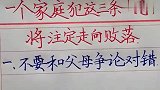 一个家庭犯这三条
将注定走向败落
一、不要和父母争论对错